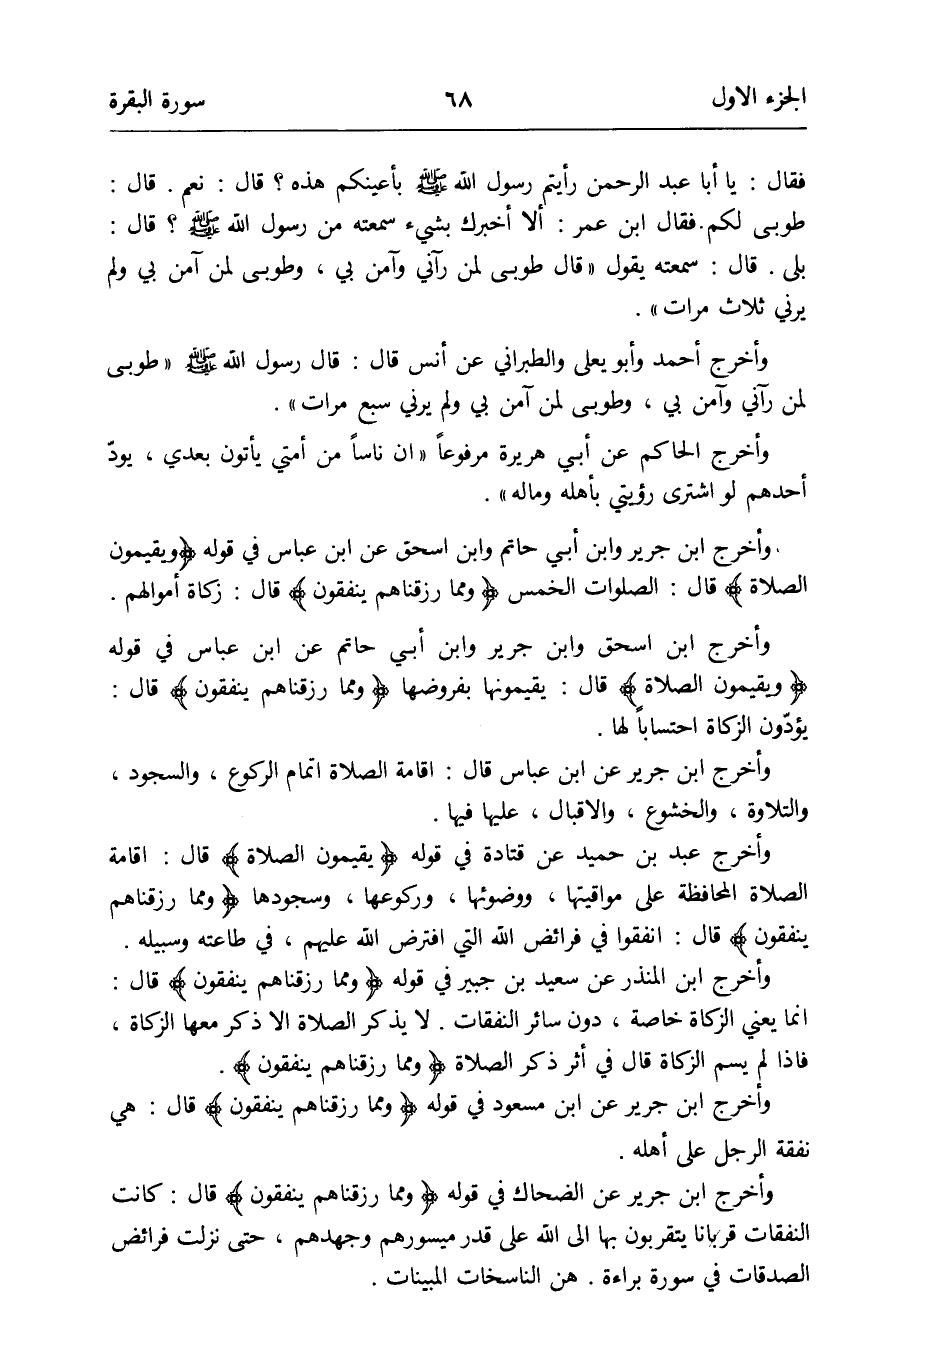 الجزء الاول ٦٨ سورة البقرة
فقال : يا أبا عبد الرحمن رأيتم رسول الله ﷺ بأعينكم هذه ؟ قال : نعم . قال :
طوبى لكم.فقال ابن عمر : ألا أخبرك بشيء سمعته من رسول الله ﷺ ؟ قال :
بلى . قال : سمعته يقول «قال طوبى لمن رآني وآمن بي ، وطوبى لمن آمن بي ولم
يرني ثلاث مرات» .
وأخرج أحمد وأبو يعلى والطبراني عن أنس قال : قال رسول الله ﷺ «طوبى
لمن رآني وآمن بي ، وطوبى لمن آمن بي ولم يرني سبع مرات» .
وأخرج الحاكم عن أبي هريرة مرفوعاً «ان ناساً من أمتي يأتون بعدي ، يودّ
أحدهم لو اشترى رؤيتي بأهله وماله» .
وأخرج ابن جرير وابن أبي حاتم وابن اسحق عن ابن عباس في قوله ﴿ويقيمون
الصلاة﴾ قال : الصلوات الخمس ﴿ومما رزقناهم ينفقون﴾ قال : زكاة أموالهم .
وأخرج ابن اسحق وابن جرير وابن أبي حاتم عن ابن عباس في قوله
﴿ويقيمون الصلاة﴾ قال : يقيمونها بفروضها ﴿ومما رزقناهم ينفقون﴾ قال :
يؤدّون الزكاة احتساباً لها .
وأخرج ابن جرير عن ابن عباس قال : اقامة الصلاة اتمام الركوع ، والسجود ،
والتلاوة ، والخشوع ، والاقبال ، عليها فيها .
وأخرج عبد بن حميد عن قتادة في قوله ﴿يقيمون الصلاة﴾ قال : اقامة
الصلاة المحافظة على مواقيتها ، ووضوئها ، وركوعها ، وسجودها ﴿ومما رزقناهم
ينفقون﴾ قال : انفقوا في فرائض الله التي افترض الله عليهم ، في طاعته وسبيله .
وأخرج ابن المنذر عن سعيد بن جبير في قوله ﴿ومما رزقناهم ينفقون﴾ قال :
انما يعني الزكاة خاصة ، دون سائر النفقات . لا يذكر الصلاة الا ذكر معها الزكاة ،
فاذا لم يسم الزكاة قال في أثر ذكر الصلاة ﴿ومما رزقناهم ينفقون﴾ .
وأخرج ابن جرير عن ابن مسعود في قوله ﴿ومما رزقناهم ينفقون﴾ قال : هي
نفقة الرجل على أهله .
وأخرج ابن جرير عن الضحاك في قوله ﴿ومما رزقناهم ينفقون﴾ قال : كانت
النفقات قربانا يتقربون بها الى الله على قدر ميسورهم وجهدهم ، حتى نزلت فرائض
الصدقات في سورة براءة . هن الناسخات المبينات .